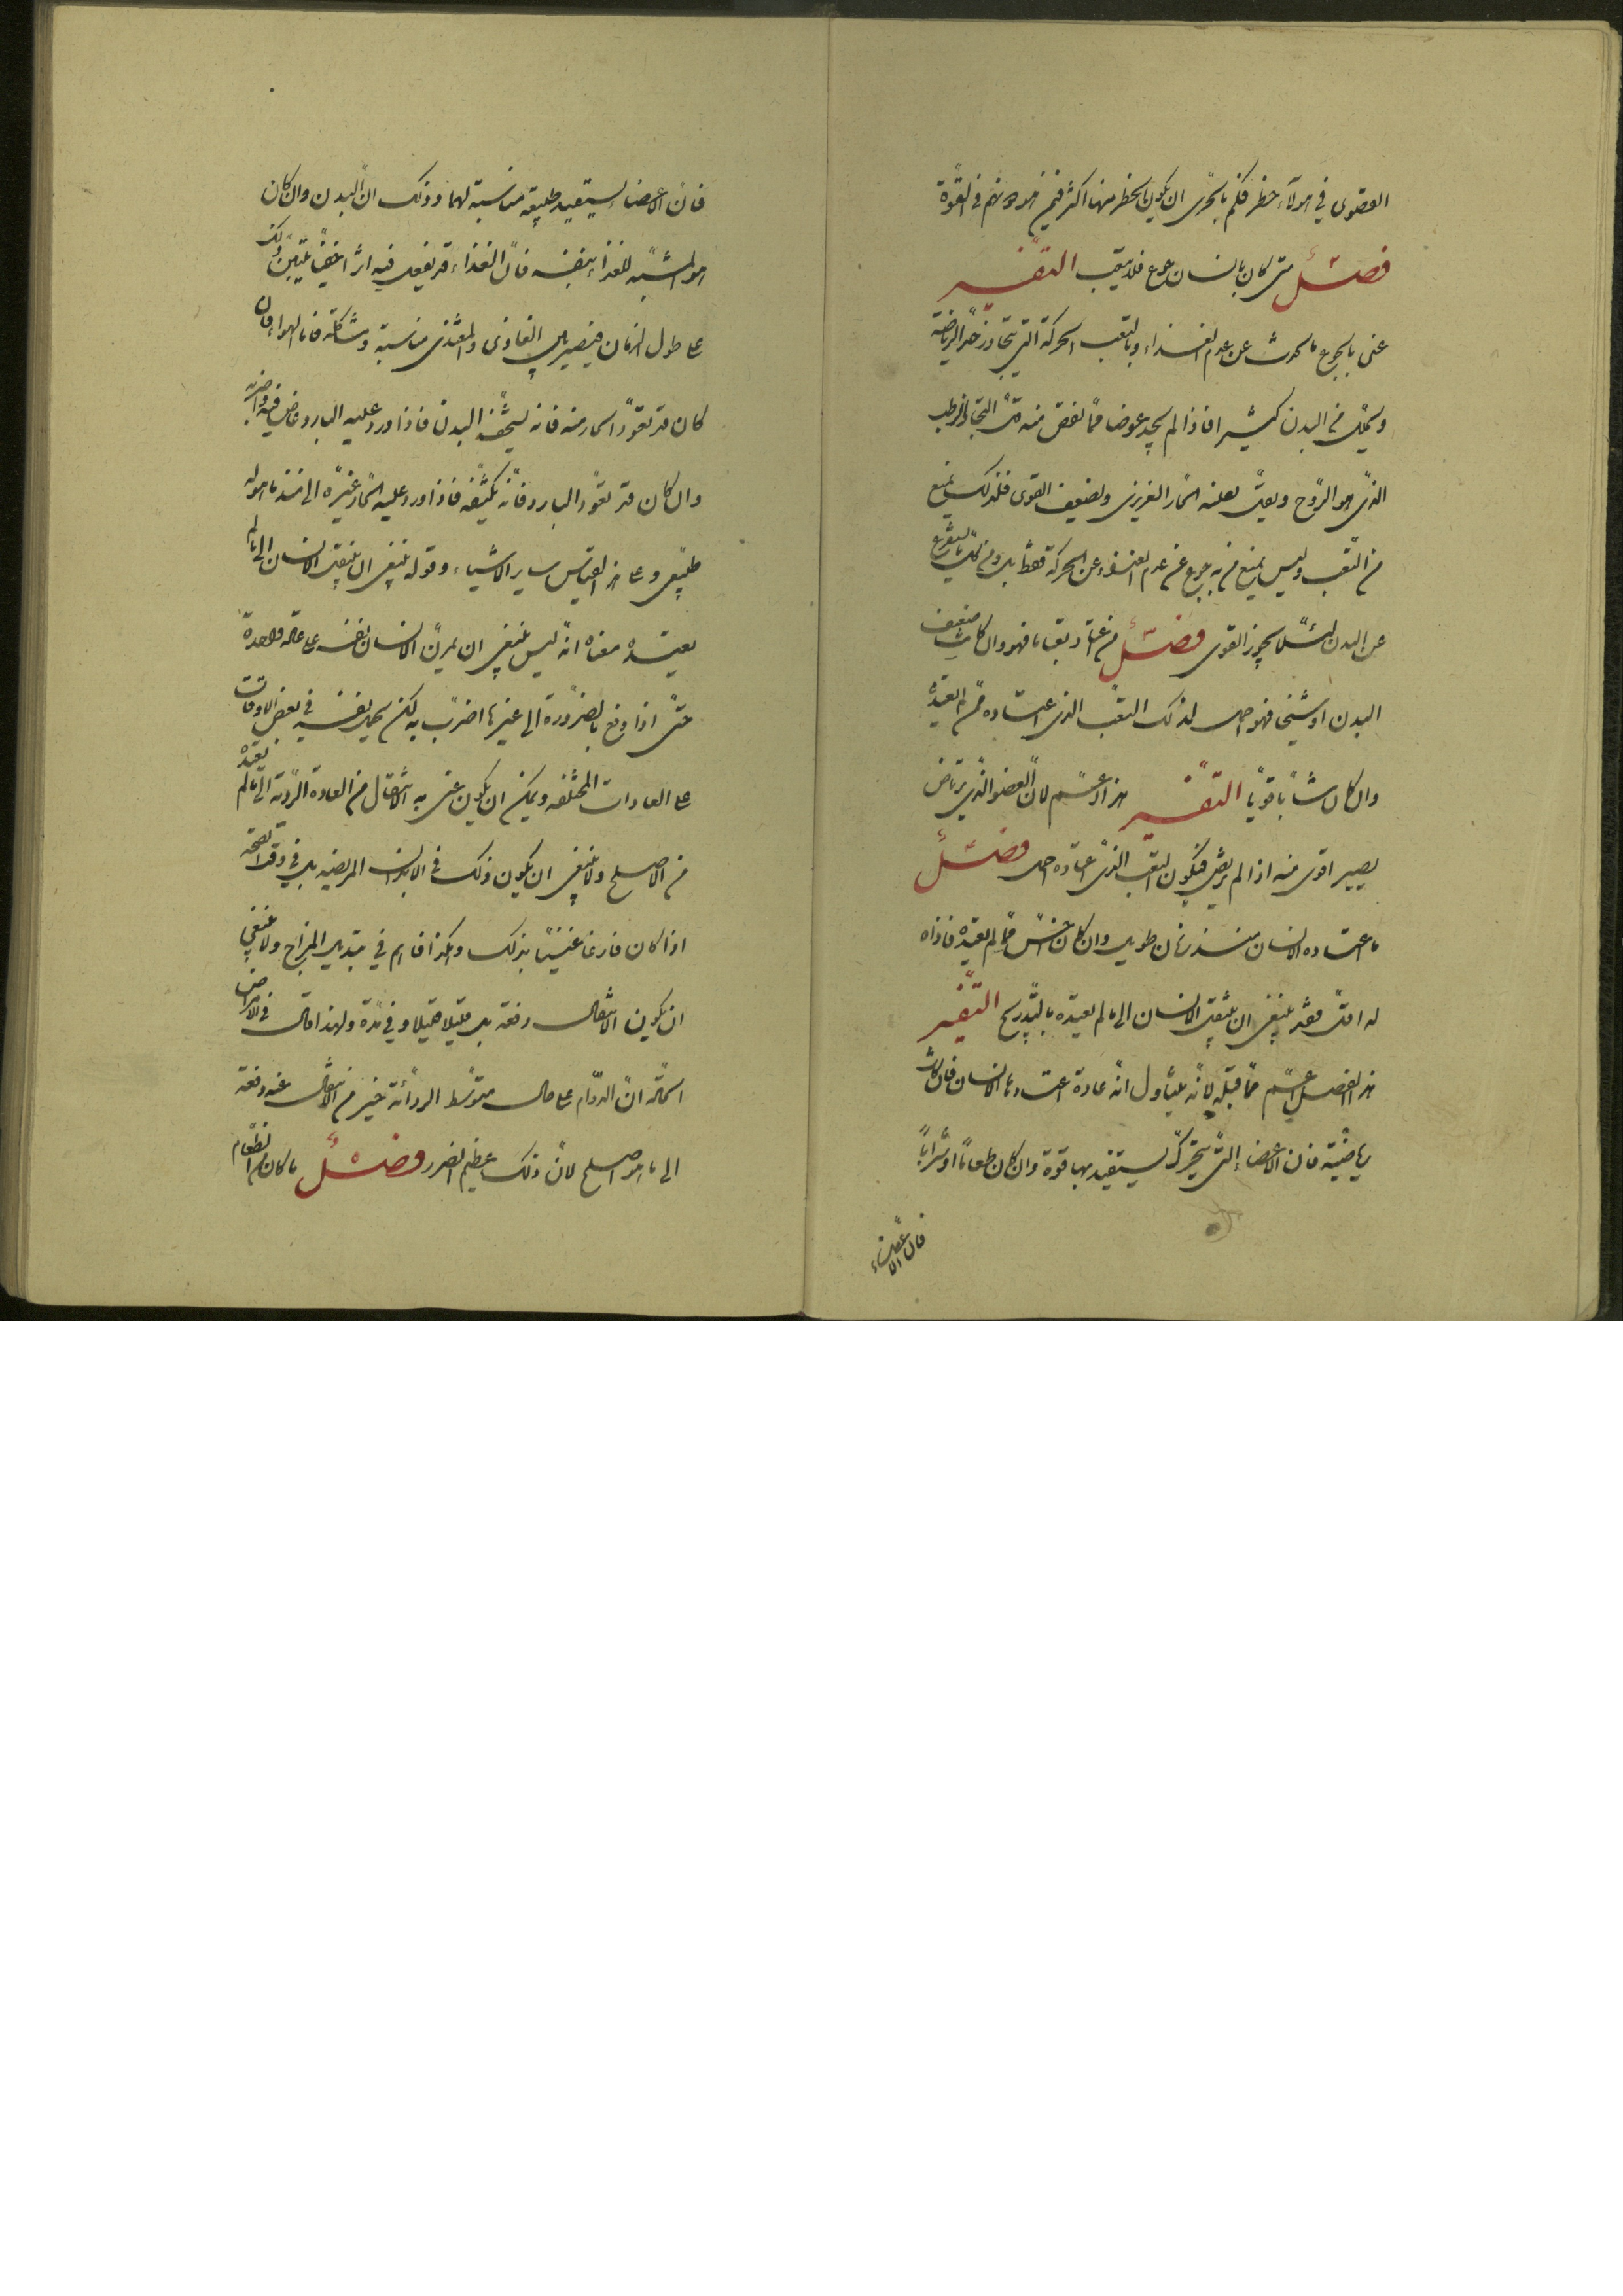 القصوى في هولآء خطر فكم بالحرى ان يكون الخطر منها اكثر فيمن هو دونهم في القوة
فصل متى كان بانسان جوع فلا يتعب التفسير
عنى بالجوع ما يحدث عن عدم الغذاء وبالتعب الحركة التي تجاوز حد الرياضة
ويتحلل من البدن كثيرا فاذا لم يجد عوضا مما نقص منه قل البخار الرطب
الذي هو الروح ويقل بقلته الحار الغريزي ويضعف القوى فلذلك يمنع
من التعب وليس يمنع من به جوع عن عدم الغذاء عن الحركة فقط بل ومن كل ما يستفرغ
عن البدن لئلا يخور القوى فصل من اعتاد تعبا ما فهو وان كان ضعيف
البدن او شيخا فهو احمل لذلك التعب الذي اعتاده ممن لم يعتده
وان كان شابا قويا التفسير هذا اعم لان العضو الذي يرتاض
يصير اقوى منه اذا لم يرتض فيكون التعب الذي اعتاده احمل فصل
ما اعتاده الانسان منذ زمان طويل وان كان اخس مما لم يعتده فاذاه
له اقل فقد ينبغي ان ينتقل الانسان الى ما لم يعتده بالتدريج التفسير
هذا الفصل اعم مما قبله لانه يتناول انه عادة اعتادها الانسان فان كانت
رياضية فان الاعضاء التي تتحرك يستفيد بها قوة وان كان طعاما او شرابا
فان الاعضاء
فان الاعضاء يستفيد طبيعة مناسبة لهما وذلك ان البدن وان كان
هو المشبه للغذاء بنفسه فان الغذاء قد يفعل فيه اثرا خفيا يتبين ذلك
على طول الزمان فيصير بين الغاذي والمغتذي مناسبة ومشاكلة فاما الهواء فان
كان قد تعود الحار منه فانه يسخف البدن فاذا ورد عليه البارد غاص فيه واضر به
وان كان قد تعود البارد فانه يكثفه فاذا ورد عليه الحار غيره الى ضد ما هو له
طبيعي وعلى هذا القياس ساير الاشياء وقوله ينبغي ان ينتقل الانسان الى ما لم
يعتده معناه انه ليس ينبغي ان يمرن الانسان نفسه على عادة واحدة
حتى اذا وقع بالضرورة الى غيرها اضرت به لكن يحمل نفسه في بعض الاوقات
على العادات المختلفه ويمكن ان يكون عنى به الانتقال من العادة الردية الى ما لم يعتده
من الاصلح ولا ينبغي ان يكون ذلك في الابدان المريضه بل في وقت الصحة
اذا كان فارغا غنيا بذلك وهكذا فافهم في تبديل المزاج ولا ينبغي
ان يكون الانتقال دفعة بل قليلا قليلا وفي مدة ولهذا قال في الامراض
الحادة ان الدوام على حال متوسط الرداءة خير من الانتقال عنه دفعة
الى ما هو اصلح لان ذلك عظيم الضرر فصل ما كان من الطعام